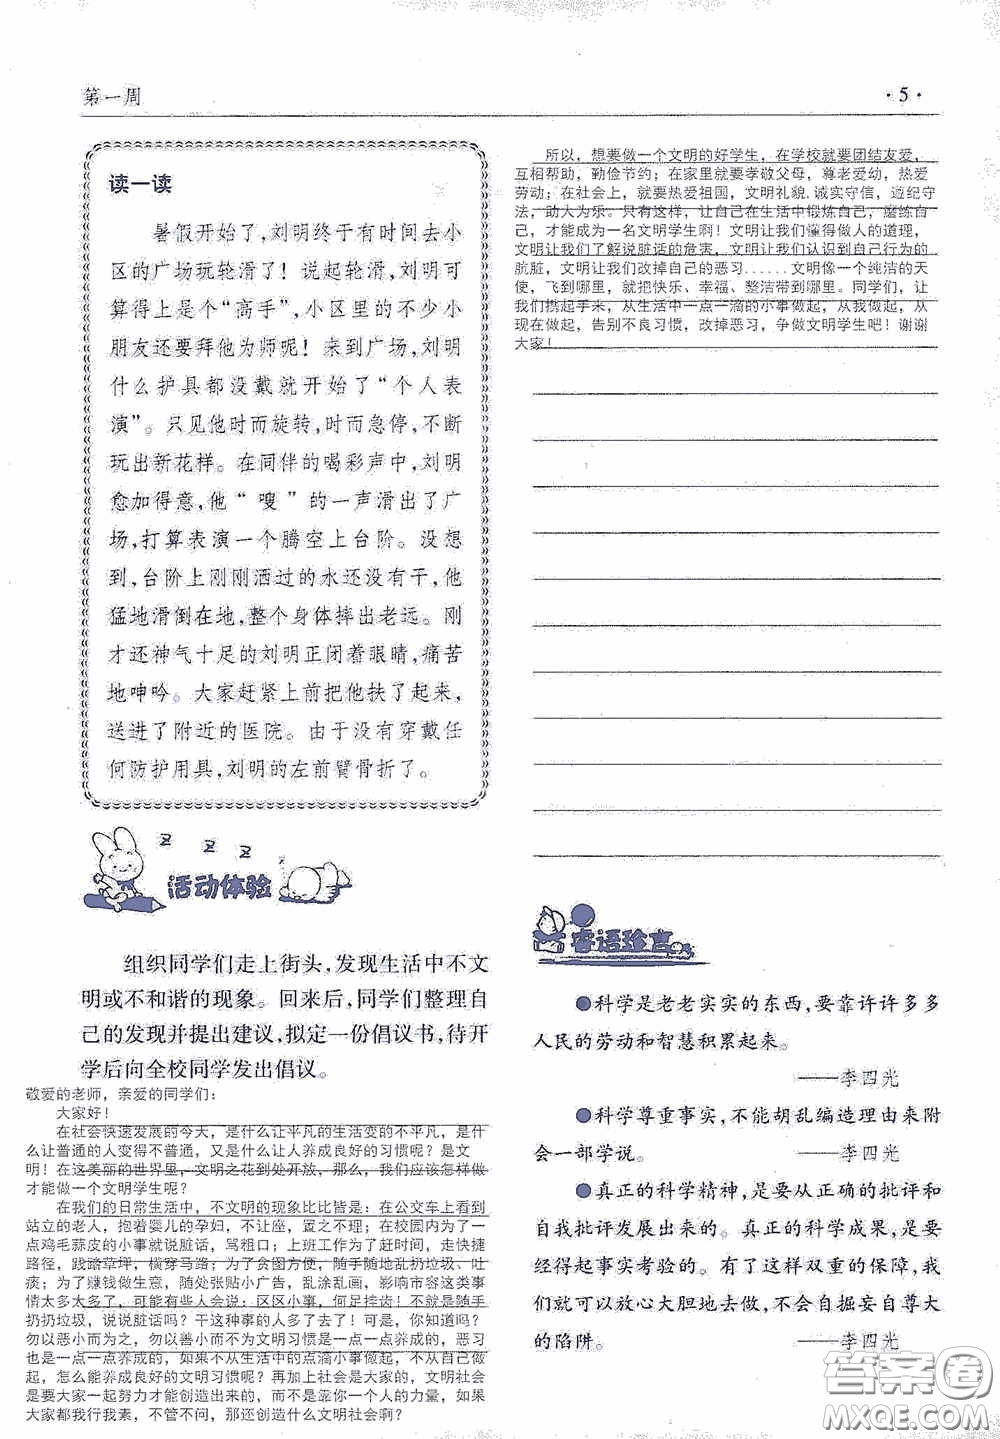 第一周
·5·
读一读
暑假开始了,刘明终于有时间去小
区的广场玩轮滑了！说起轮滑,刘明可
算得上是个“高手”,小区里的不少小
朋友还要拜他为师呢！来到广场,刘明
什么护具都没戴就开始了“个人表
演”。只见他时而旋转,时而急停,不断
玩出新花样。在同伴的喝彩声中,刘明
愈加得意,他“嗖”的一声滑出了广
场,打算表演一个腾空上台阶。没想
到,台阶上刚刚洒过的水还没有干,他
猛地滑倒在地,整个身体摔出老远。刚
才还神气十足的刘明正闭着眼睛,痛苦
地呻吟。大家赶紧上前把他扶了起来,
送进了附近的医院。由于没有穿戴任
何防护用具,刘明的左前臂骨折了。
z z z
活动体验
组织同学们走上街头,发现生活中不文
明或不和谐的现象。回来后,同学们整理自
己的发现并提出建议,拟定一份倡议书,待开
学后向全校同学发出倡议。
敬爱的老师，亲爱的同学们：
大家好！
在社会快速发展的今天，是什么让平凡的生活变的不平凡，是什
么让普通的人变得不普通，又是什么让人养成良好的习惯呢？是文
明！在这美丽的世界里，文明之花到处开放，那么，我们应该怎样做
才能做一个文明学生呢？
在我们的日常生活中，不文明的现象比比皆是：在公交车上看到
站立的老人，抱着婴儿的孕妇，不让座，置之不理；在校园内为了一
点鸡毛蒜皮的小事就说脏话，骂粗口；上班工作为了赶时间，走快捷
路径，践踏草坪，横穿马路；为了贪图方便，随手随地乱扔垃圾、吐
痰；为了赚钱做生意，随处张贴小广告，乱涂乱画，影响市容这类事
情太多太多了，可能有些人会说：区区小事，何足挂齿！不就是随手
扔扔垃圾，说说脏话吗？干这种事的人多了去了！可是，你知道吗？
勿以恶小而为之，勿以善小而不为文明习惯是一点一点养成的，恶习
也是一点一点养成的，如果不从生活中的点滴小事做起，从我做起，
怎么能养成良好的文明习惯呢？再加上社会是大家的，文明社会
是要大家一起努力才能创造出来的，而不是靠你一个人的力量，如果
大家都我行我素，不管不问，那还创造什么文明社会啊？
所以，想要做一个文明的好学生，在学校就要团结友爱，
互相帮助，勤俭节约；在家里就要孝敬父母，尊老爱幼，热爱
劳动；在社会上，就要热爱祖国，文明礼貌，诚实守信，遵纪守
法，助人为乐。只有这样，让自己在生活中锻炼自己，磨练自
己，才能成为一名文明学生啊！文明让我们懂得做人的道理，
文明让我们了解说脏话的危害，文明让我们认识到自己行为的
肮脏，文明让我们改掉自己的恶习......文明像一个纯洁的天
使，飞到哪里，就把快乐、幸福、整洁带到哪里。同学们，让
我们携起手来，从生活中一点一滴的小事做起，从我做起，从
现在做起，告别不良习惯，改掉恶习，争做文明学生吧！谢谢
大家！
睿语珍言
●科学是老老实实的东西,要靠许许多多
人民的劳动和智慧积累起来。
——李四光
●科学尊重事实,不能胡乱编造理由来附
会一部学说。 ——李四光
●真正的科学精神,是要从正确的批评和
自我批评发展出来的。真正的科学成果,是要
经得起事实考验的。有了这样双重的保障,我
们就可以放心大胆地去做,不会自掘妄自尊大
的陷阱。 ——李四光
答案圈
MXQE.COM